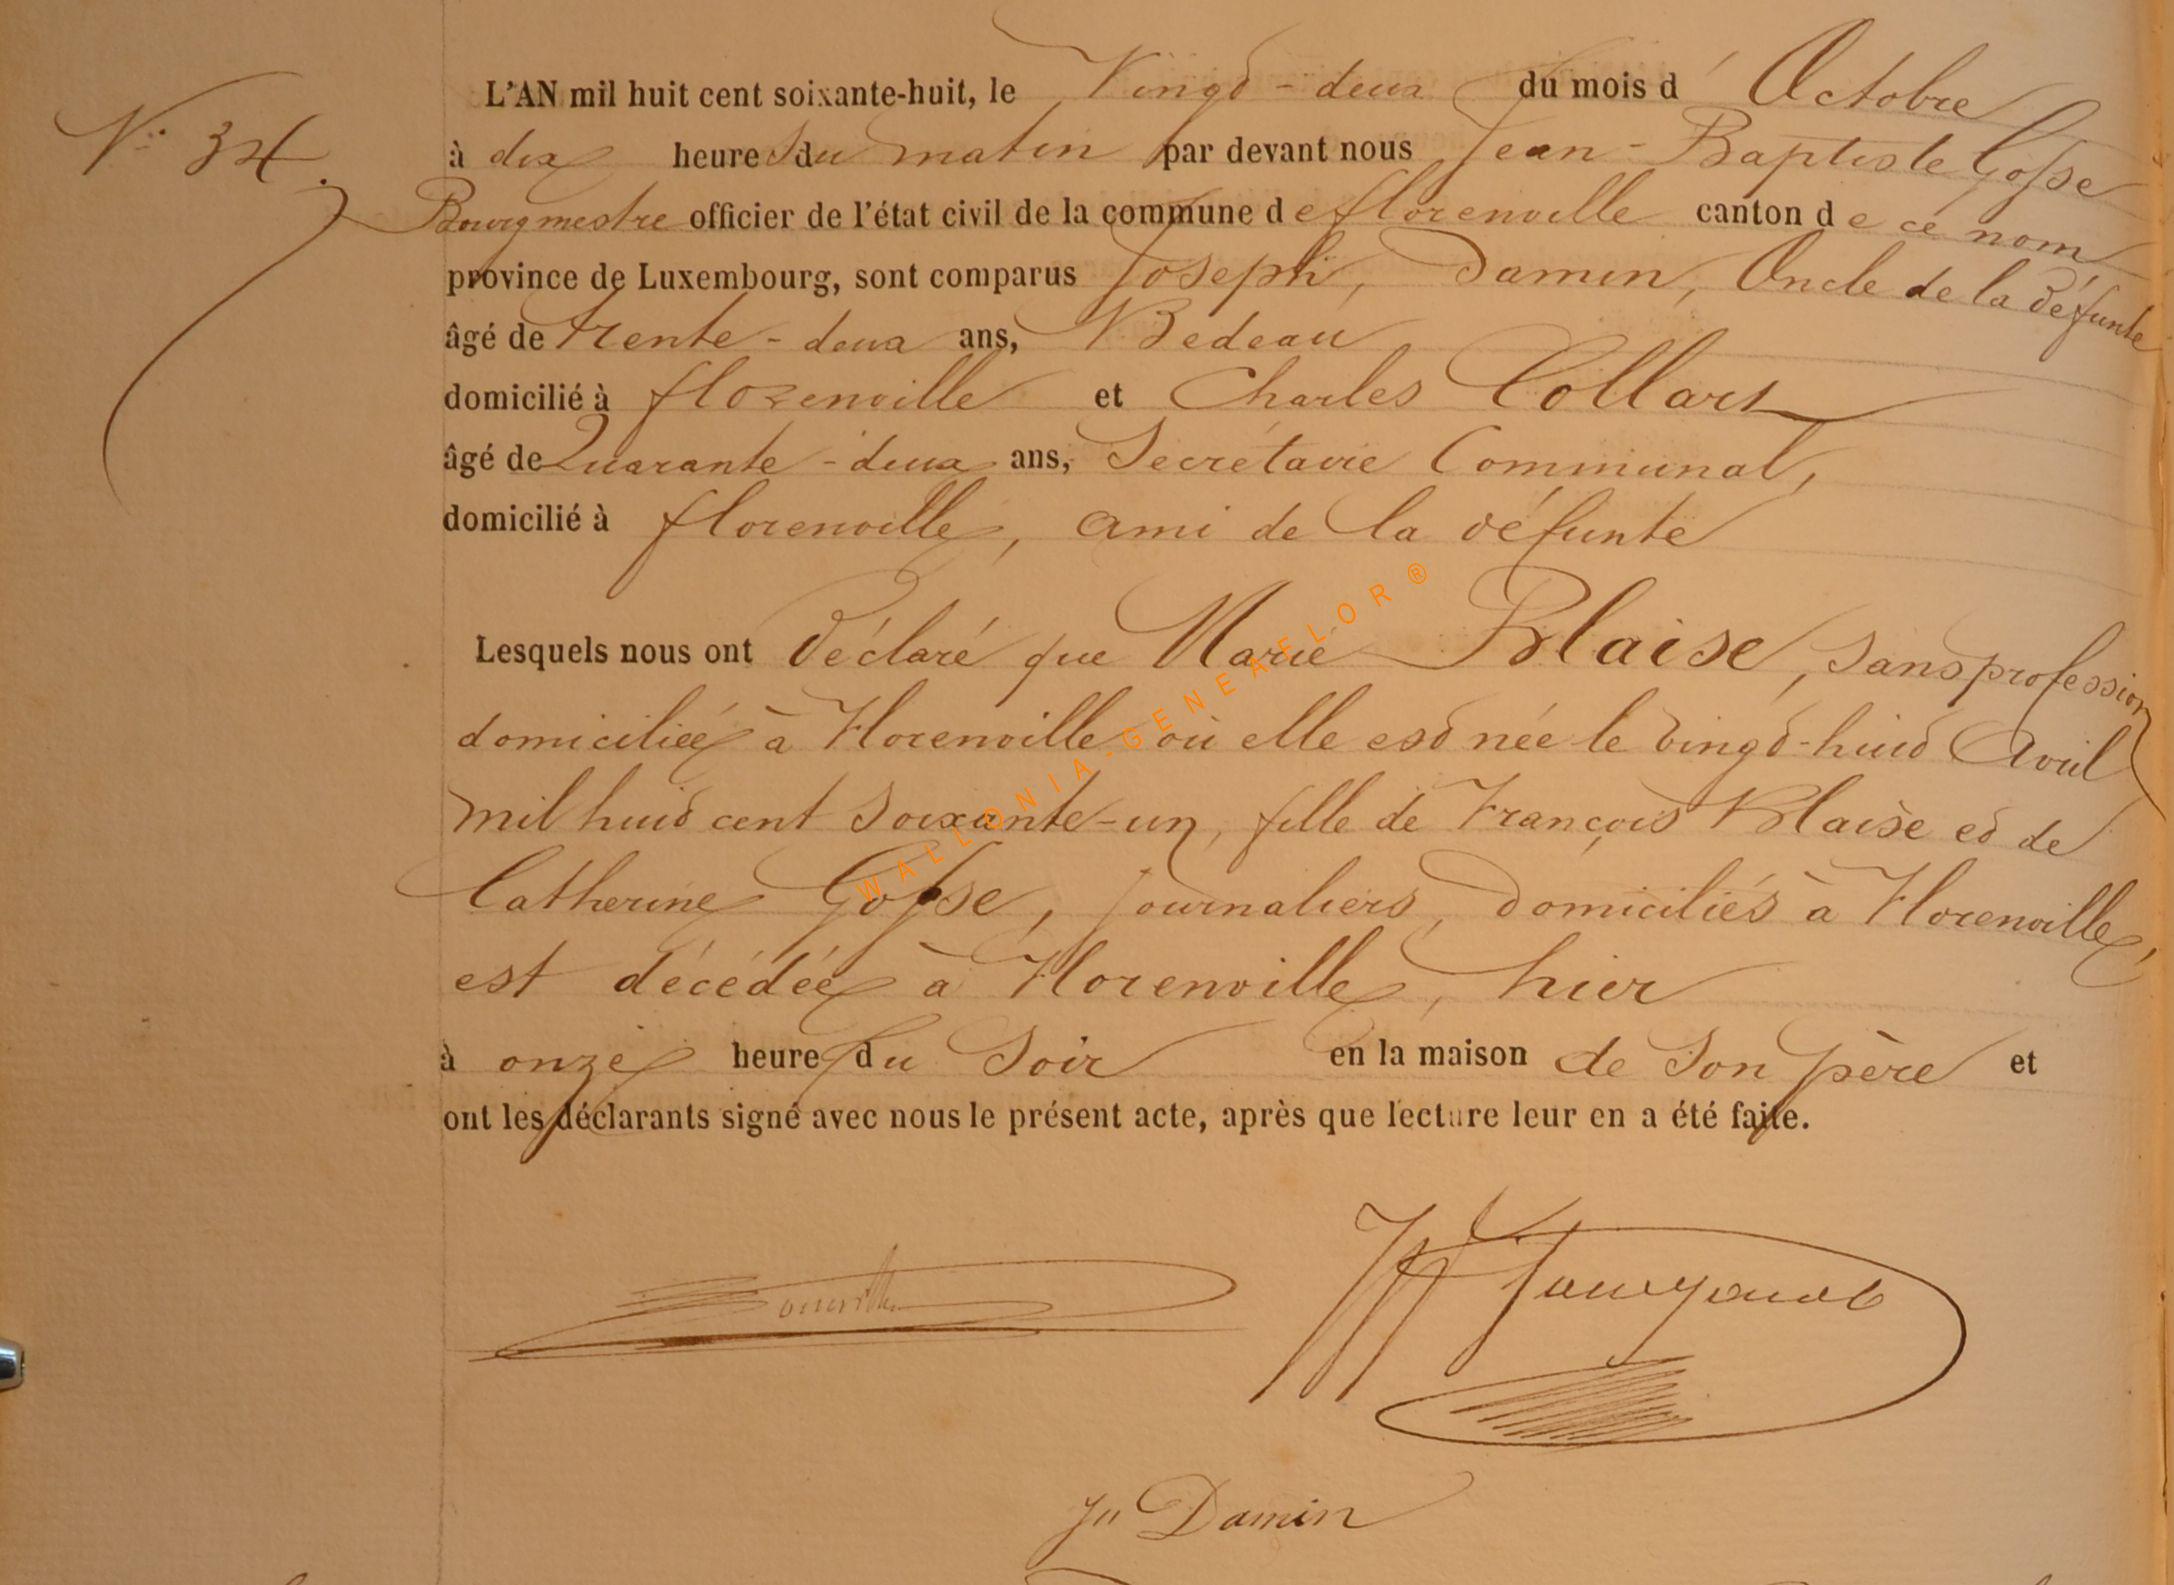 N° 34.
L'AN mil huit cent soixante-huit, le Vingt-deux du mois d'Octobre
à dix heures du matin par devant nous Jean-Baptiste Gosse
Bourgmestre officier de l'état civil de la commune de florenville canton de ce nom
province de Luxembourg, sont comparus Joseph, Damin, Oncle de la défunte
âgé de trente-deux ans, Bedeau
domicilié à florenville et Charles Collart
âgé de Quarante-deux ans, Secrétaire Communal,
domicilié à florenville, ami de la défunte
Lesquels nous ont déclaré que Marie Blaise, sans profession
domiciliée à Florenville où elle est née le vingt-huit Avril
mil huit cent soixante-un, fille de François Blaise et de
Catherine Gosse, journaliers, domiciliés à Florenville,
est décédée à Florenville, hier
à onze heures du soir en la maison de son père et
ont les déclarants signé avec nous le présent acte, après que lecture leur en a été faite.
Jh Damin
WALLONIA-GENEAFLOR®